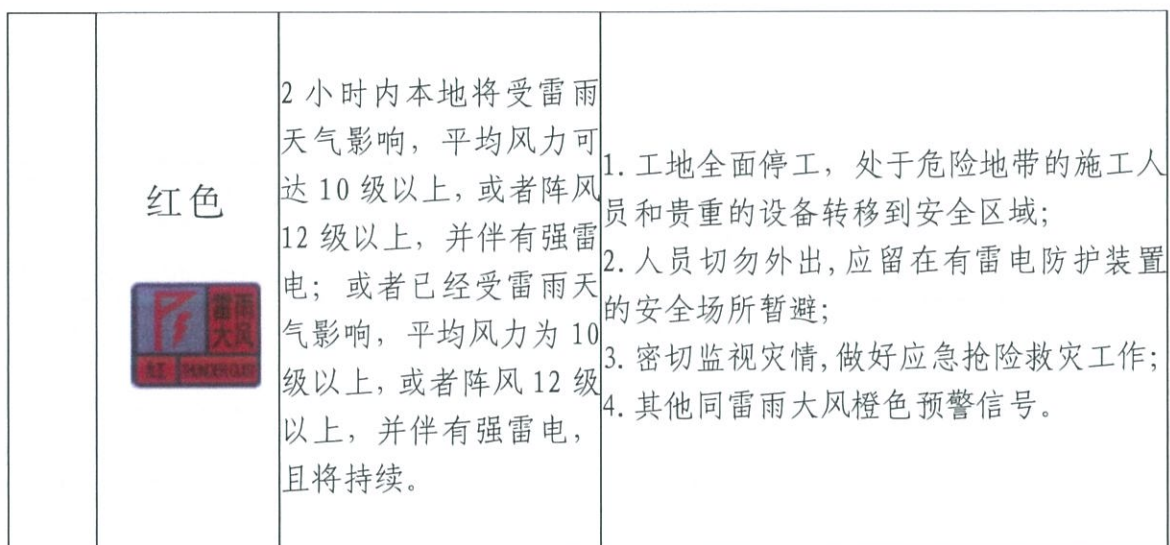 红色
雷雨
大风
红 THUNDER GUST
2 小时内本地将受雷雨
天气影响，平均风力可
达 10 级以上，或者阵风
12 级以上，并伴有强雷
电；或者已经受雷雨天
气影响，平均风力为 10
级以上，或者阵风 12 级
以上，并伴有强雷电，
且将持续。
1. 工地全面停工，处于危险地带的施工人
员和贵重的设备转移到安全区域；
2. 人员切勿外出，应留在有雷电防护装置
的安全场所暂避；
3. 密切监视灾情，做好应急抢险救灾工作；
4. 其他同雷雨大风橙色预警信号。